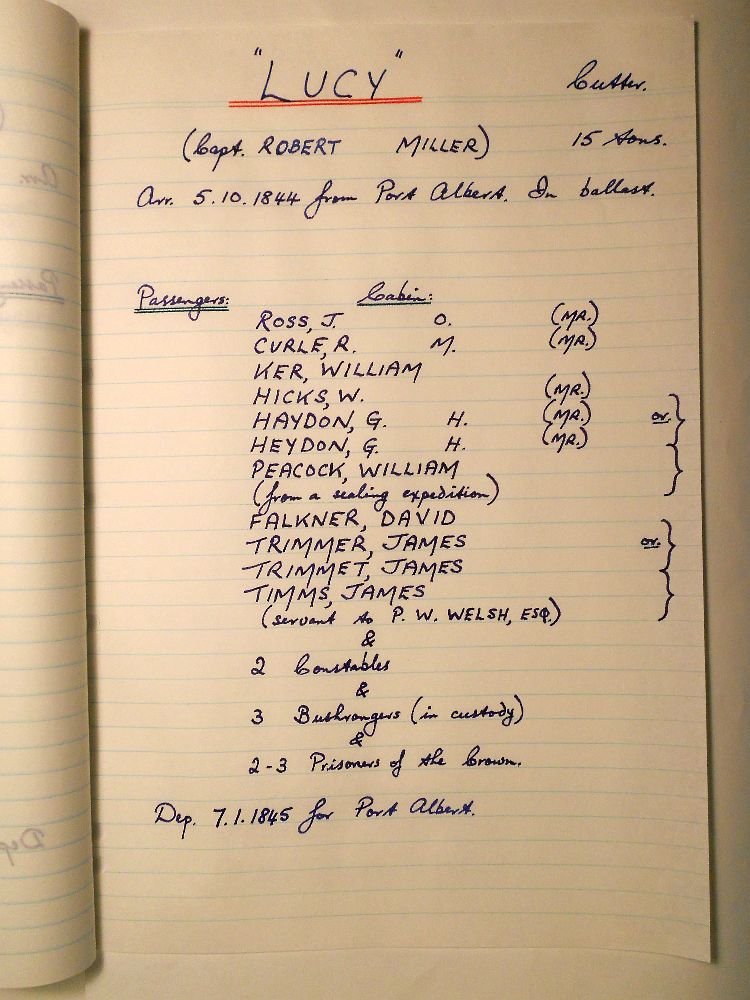 "LUCY" Cutter.
(Capt. ROBERT MILLER) 15 tons.
Arr. 5.10.1844 from Port Albert. In ballast.
Passengers: Cabin:
ROSS, J. O. (MR.)
CURLE, R. M. (MR.)
KER, WILLIAM
HICKS, W. (MR.)
HAYDON, G. H. (MR.) or.
HEYDON, G. H. (MR.)
PEACOCK, WILLIAM
(from a sealing expedition)
FALKNER, DAVID
TRIMMER, JAMES or.
TRIMMET, JAMES
TIMMS, JAMES
(servant to P. W. WELSH, ESQ.)
&
2 Constables
&
3 Bushrangers (in custody)
&
2-3 Prisoners of the Crown.
Dep. 7.1.1845 for Port Albert.